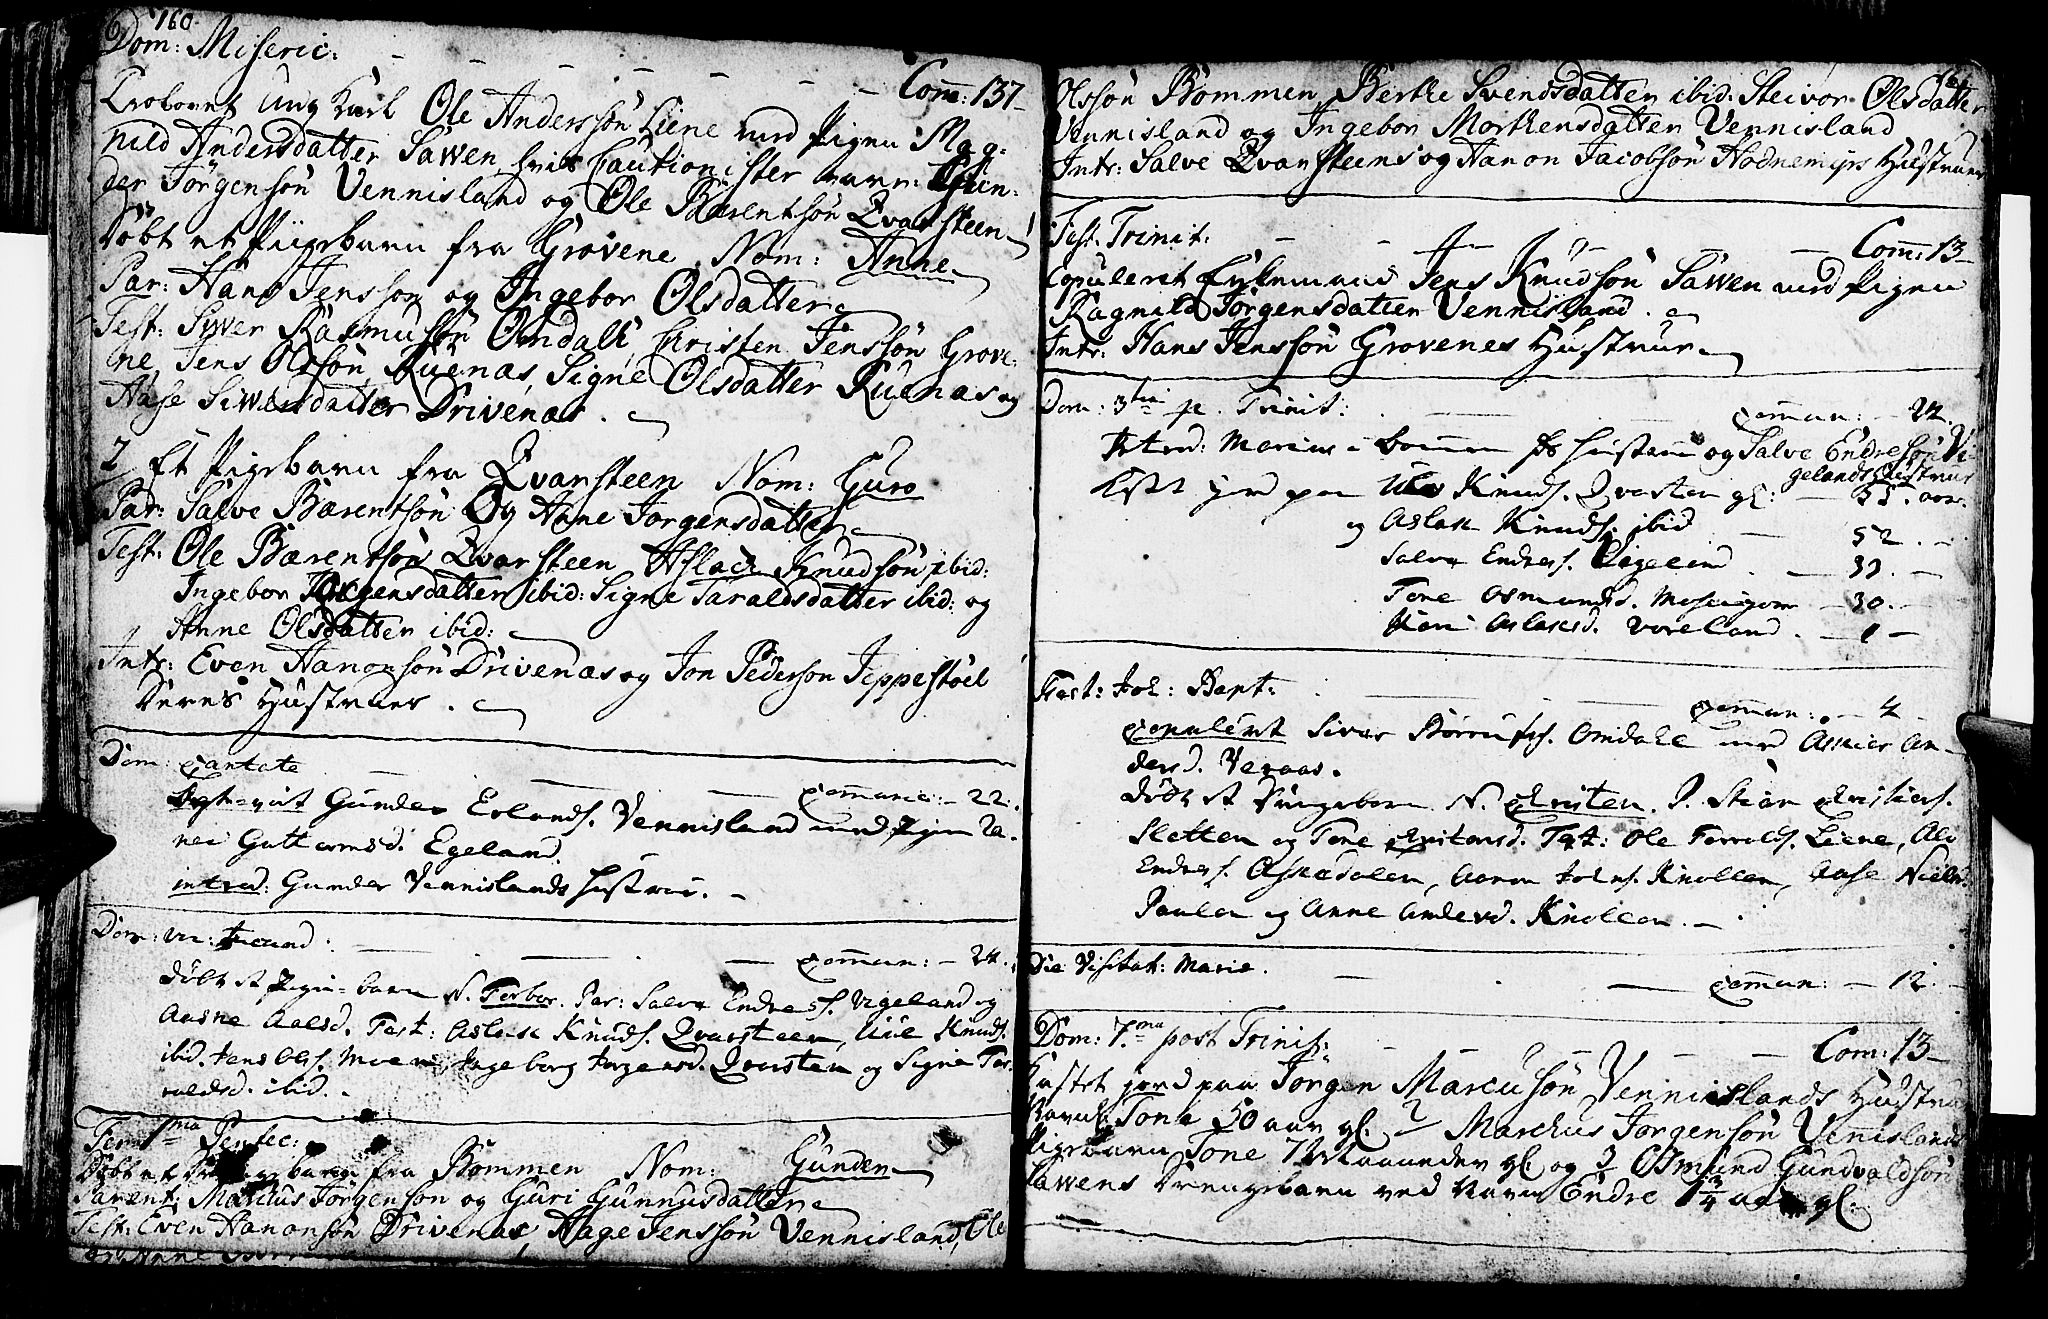 160.
Dom: Miseric: Com: 137
Trolovet Ung Karl Ole Anderssön Liene med Pigen Mag:
nild Andersdatter Sawen, hvis Cautionister vare: Gun:
der Jörgensön Vennisland og Ole Bærentsön Qvarsteen
Döbt et Piigebarn fra Grovene Nom: Anne
Par: Hans Jenssön og Ingebor Olsdatter
Test: Syver Rasmusön Omdall, Christen Jenssön Grove:
ne, Jens Olssön Ruenæs, Signe Olsdatter Ruenæs og
Aase Siwersdatter Drivenæs.
2 Et Pigebarn fra Qvarsteen Nom: Guro
Par: Salve Bærentsön Og Anne Jorgensdatter
Test: Ole Bærentsön Qvarsteen Aslack Knudsön ibid:
Ingebor Jörgensdatter ibid: Signe Taraldsdatter ibid: og
Anne Olsdatter ibid:
Intr: Even Hanonsön Drivenæs og Jon Pederson Jeppestöel
Deres Hustruer.
Dom: Cantate Commun: 22.
Gunder Erlands. Vennisland med Pigen
Guttormsd. Egeland.
introd: Gunder Vennislands Hustrue.
Dom: vi: Jucund: Commun: 24.
Döbt et Pige-barn N. Torbor. Par: Salve Endres. Vigeland og
Aasne Aalsd. Test: Aslak Knuds. Qvarsteen, Knuds.
ibid. Jens Ols. Moen, Ingeborg Jörgensd. Qvarsten og Signe Tar-
aldsd. ibid.
Fer: 1ma Pentec:
Döbt et Drengebarn fra Bommen Nom: Gunder
Parent: Marcus Jörgenson og Guri Gunnusdatter
Test: Even Hanonsön Drivenæs, Aage Jenssön Vennisland, Ole
Olssön Bommen Berthe Svendsdatter ibid. Steivor Olsdatter
Vennisland og Ingebor Morthensdatter Vennisland
Intr: Salve Qvarsteens og Hanon Jacobsön Hodnemyrs Hustruer
Fest. Trinit: Com: 13
Copuleret Enkemand Jens Knudsön Sawen med Pigen
Ragnild Jörgensdatter Vennisland.
Intr: Hans Jenssön Grovenes Hustrue
Dom: 3tia p. Trinit: Commun: 24.
Introd: Marcus Bommens Hustrue og Salve Endresön Vi-
gelands Hustrue
Kast jord paa Knuds. Qvarsten gl: 55. aar.
og Aslak Knuds. ibid 52.
Salve Endres. Vigeland 33.
Tone Osmundsd. 30.
Aslaksd. Voreland. 1
Fest: Joh: Bapt: Commun: 4
Copuleret Siver Omdale med An-
dersd. Veraas.
Döbt et Drengebarn N. Christen. P. Stian Christens.
Sletten og Tone Christensd. Test: Ole Torrolds. Liene,
Endres. Askedalen, Aanon Johns. Knollen, Aase Nielsd.
Paulen og Anne Andersd. Knollen.
Die Visitat: Mariæ. Commun: 12.
Dom: 7.ma post Trinit: Com: 13
Kastet jord paa Jörgen Marcusön Vennislands Hustrue
Navnl. Tone 50 aar gl. 2 Marchus Jorgensön Vennislands
Pigebarn Tone 7 Maaneder gl. og 3 Osmund Gundvaldsön
Sawens Drengebarn ved Navn Endre 1 3/4 aar gl.